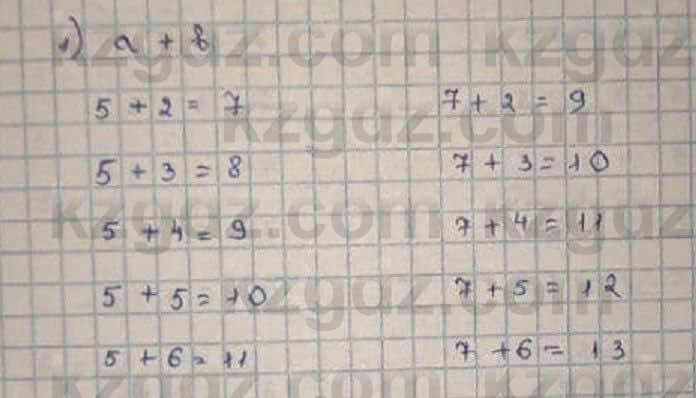 1) a + b
5 + 2 = 7 7 + 2 = 9
5 + 3 = 8 7 + 3 = 10
5 + 4 = 9 7 + 4 = 11
5 + 5 = 10 7 + 5 = 12
5 + 6 = 11 7 + 6 = 13
kzgdz.com kzgdz
kzgdz.com
kzgdz.com kzgdz
kzgdz.com
kzgdz.com